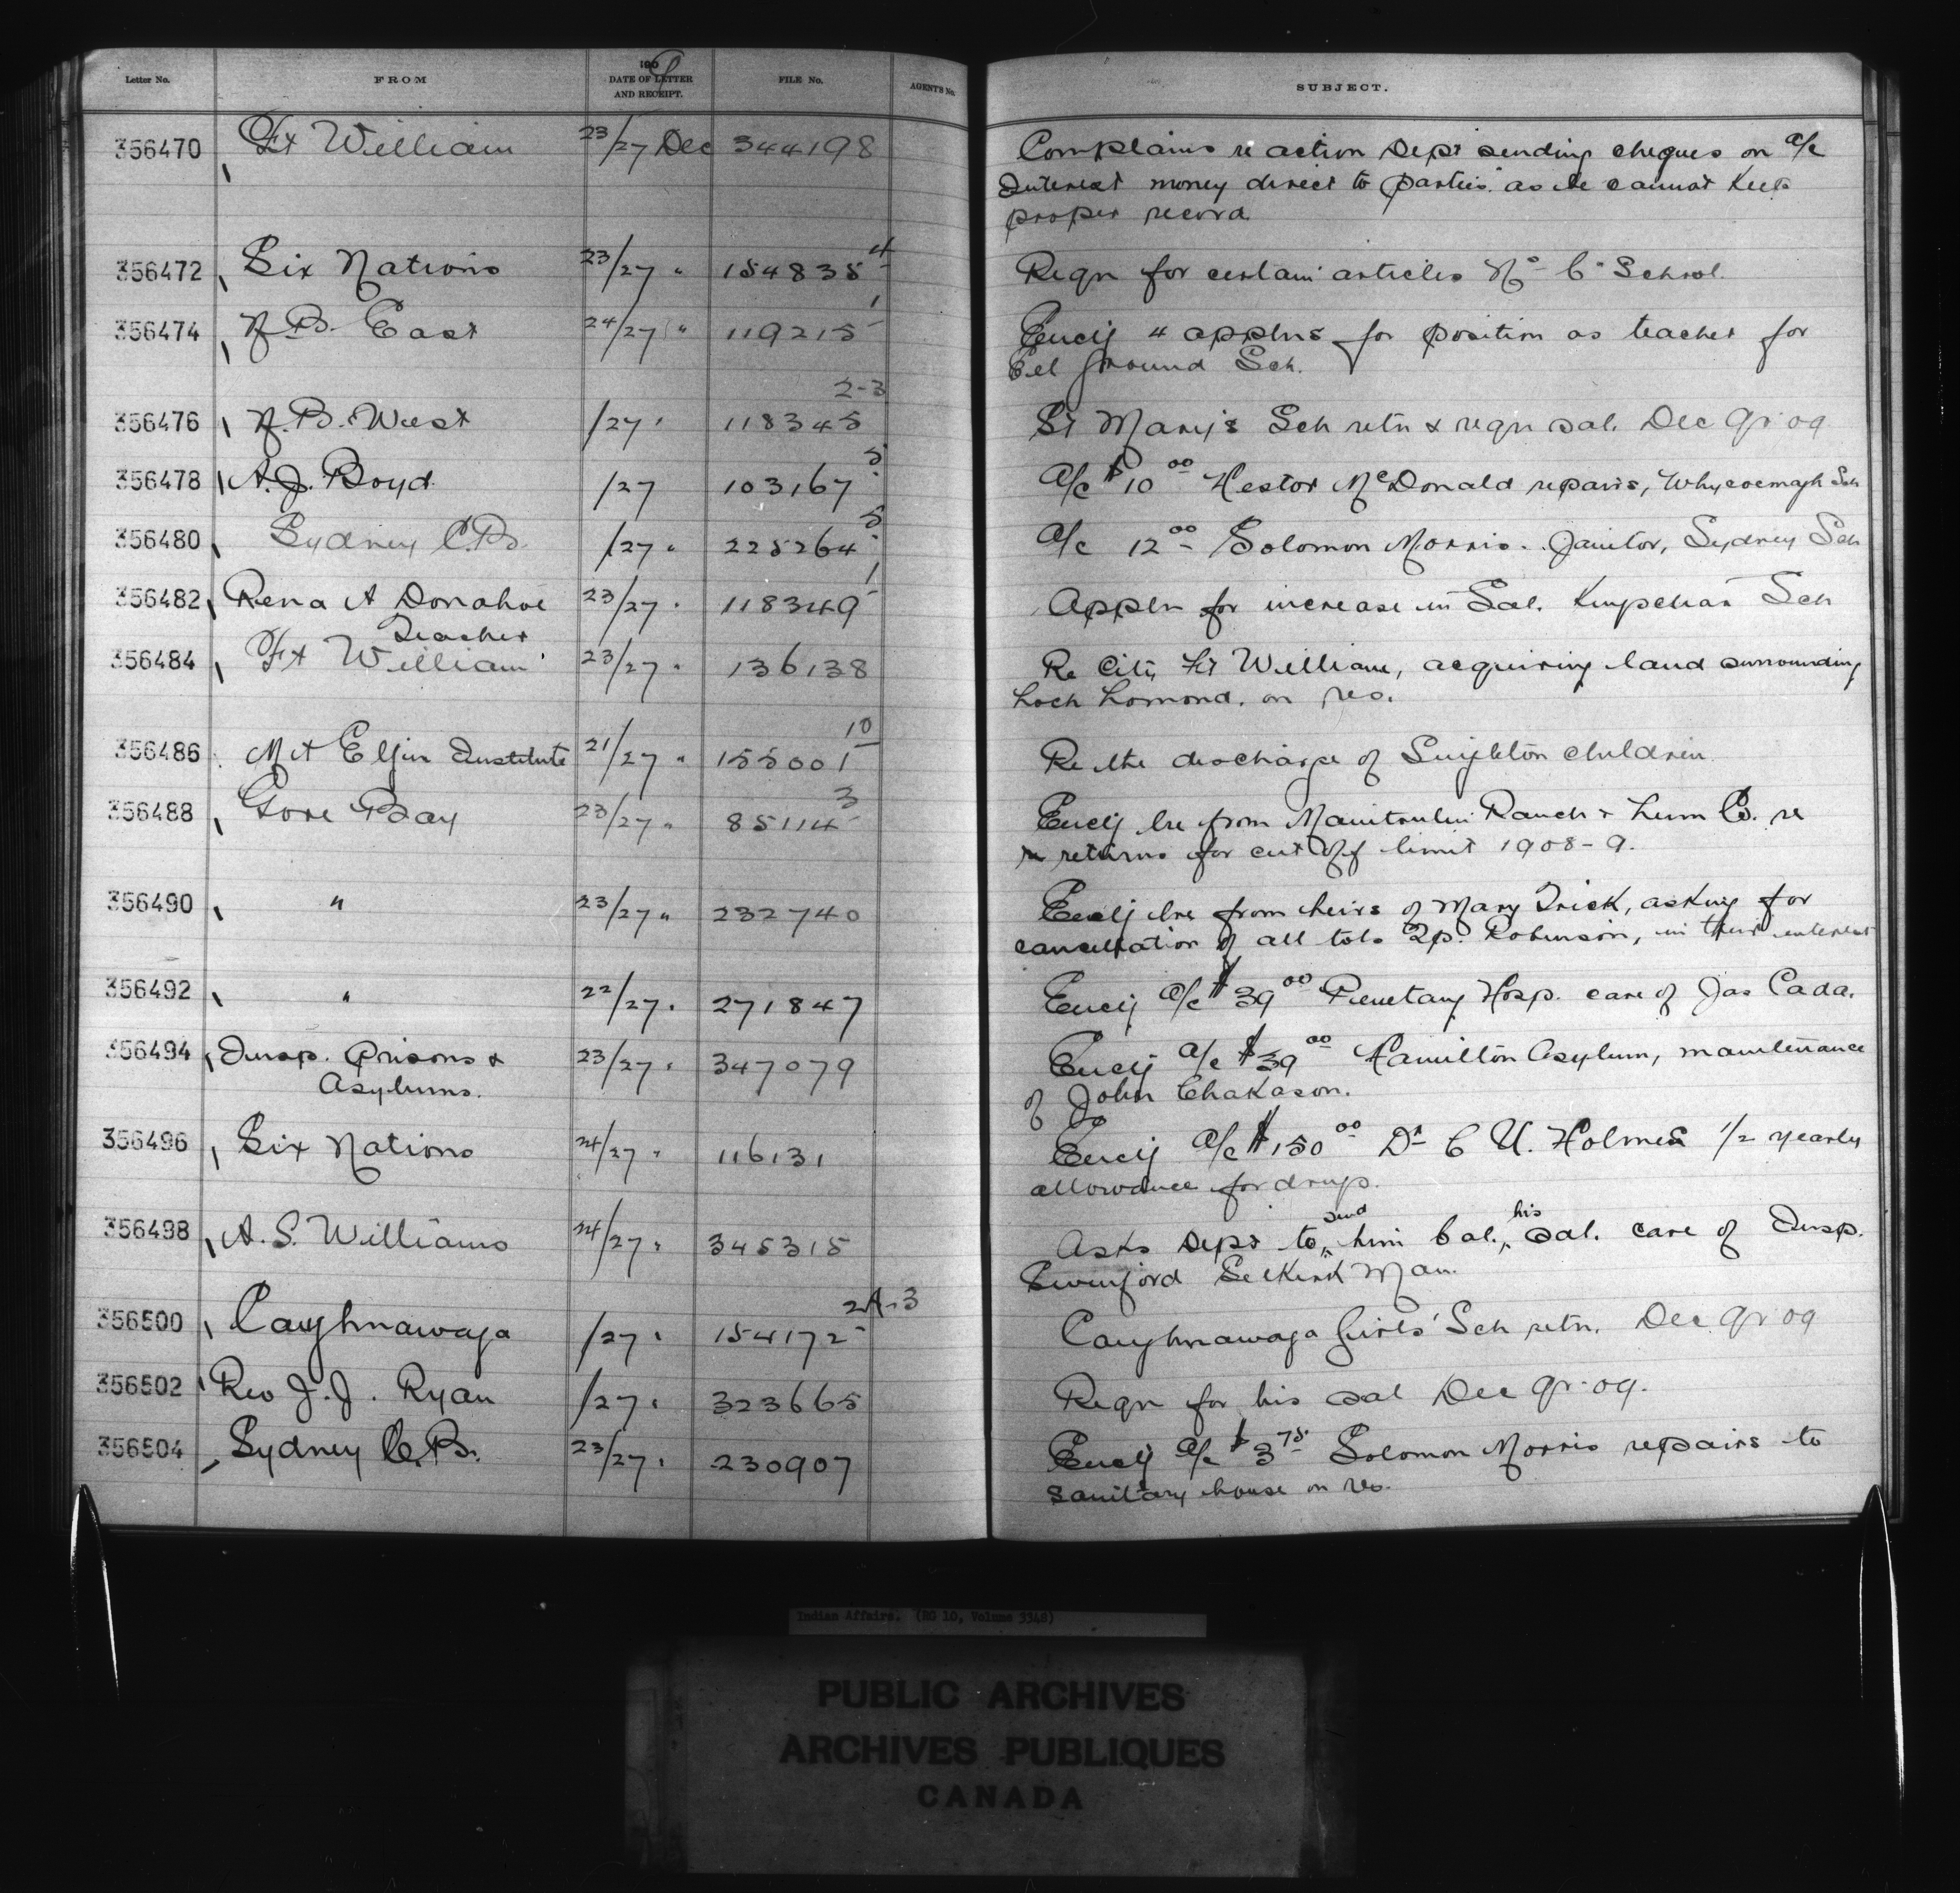 Letter No. FROM 1909 DATE OF LETTER AND RECEIPT. FILE No. AGENT'S No. SUBJECT.
356470 Ft William 23/27 Dec 344198 Complains re action Dept sending cheques on a/c
Interest money direct to parties as he cannot keep
proper record
356472 Six Nations 23/27 " 154835-4 Reqn for certain articles No 6 School.
356474 N.B. East 24/27 " 119215-1 Encly 4 applns for position as teacher for
Eel Ground Sch.
356476 N.B. West /27 " 118345 2-3 St Mary's Sch retn & reqn sal. Dec qr 09
356478 A.J. Boyd. /27 103167-5 a/c $10 00 Hestor McDonald repairs, Whycocomagh Sch
356480 Sydney C.B. /27 " 225264-5 a/c 12 00 Solomon Morris. Janitor, Sydney Sch
356482 Rena A Donahoe 23/27 " 118349-1 Appln for increase in Sal. Kingsclear Sch
Teacher
356484 Ft William 23/27 " 136138 Re City Ft William, acquiring land surrounding
Loch Lomond. on res.
356486 Mt Elgin Institute 21/27 " 155001-10 Re the discharge of Singleton children.
356488 Gore Bay 23/27 " 85114-3 Encly lre from Manitoulin Ranch & Lum Co. re
returns for cut off limit 1908-9.
356490 " 23/27 " 232740 Encly lre from heirs of Mary Trick, asking for
cancellation of all lots Tp. Robinson, in their interest
356492 " 22/27 " 271847 Encly a/c $39 00 Penetang Hosp. care of Jas Cada.
356494 Insp. Prisons & 23/27 " 347079 Encly a/c $39 00 Hamilton Asylum, maintenance
Asylums. of John Chakason.
356496 Six Nations 24/27 " 116131 Encly a/c $150 00 Dr C U. Holmes 1/2 yearly
allowance for drugs.
356498 A. S. Williams 24/27 " 345315 Asks Dept to send him bal., his sal. care of Insp.
Swinford Selkirk Man.
356500 Caughnawaga /27 " 154172 2A-3 Caughnawaga Girls' Sch retn. Dec qr 09
356502 Rev J. J. Ryan /27 " 323665 Reqn for his sal Dec qr 09.
356504 Sydney C.B. 23/27 " 230907 Encly a/c $3 75 Solomon Morris repairs to
sanitary house on res.
Indian Affairs. (RG 10, Volume 3348)
PUBLIC ARCHIVES
ARCHIVES PUBLIQUES
CANADA